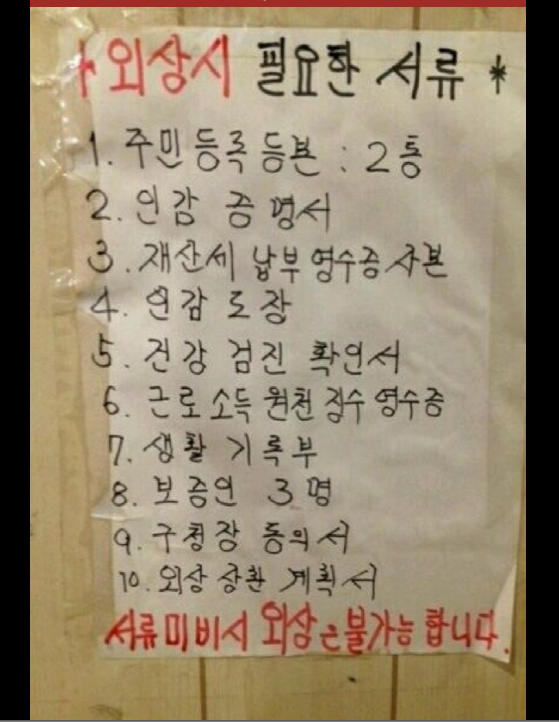 * 외상시 필요한 서류 *
1. 주민등록등본 : 2통
2. 인감 증명서
3. 재산세 납부 영수증 사본
4. 인감 도장
5. 건강 검진 확인서
6. 근로소득 원천 징수 영수증
7. 생활 기록부
8. 보증인 3명
9. 구청장 동의서
10. 외상 상환 계획서
서류 미비시 외상은 불가능 합니다.